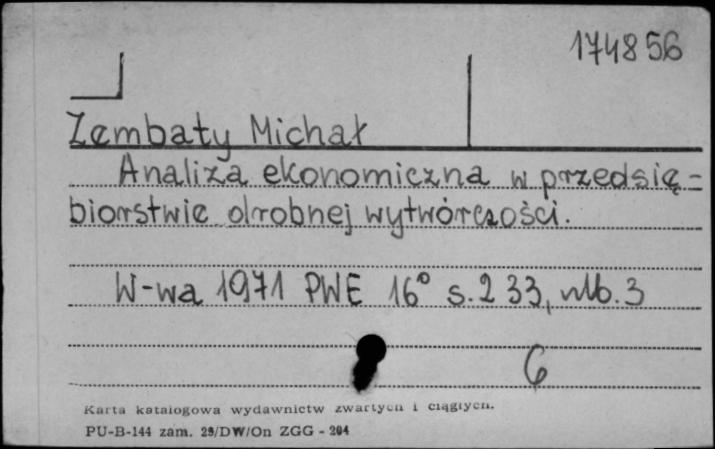 174856
Zembaty Michał
Analiza ekonomiczna w przedsię-
biorstwie drobnej wytwórczości.
W-wa 1971 PWE 16° s. 233, nlb. 3
6
Karta katalogowa wydawnictw zwartych i ciągłych.
PU-B-144 zam. 29/DW/On ZGG - 204